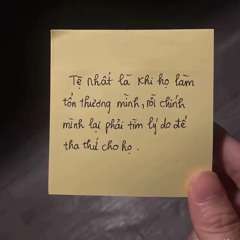 Tệ nhất là khi họ làm
tổn thương mình, rồi chính
mình lại phải tìm lý do để
tha thứ cho họ.